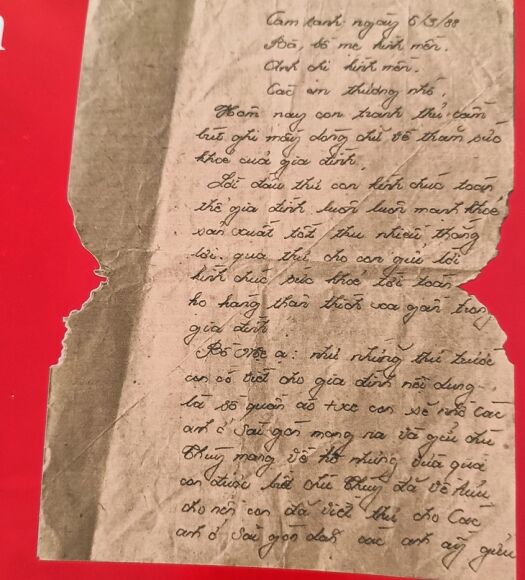 n
Cam ranh ngày 6/3/88
Bà, bố mẹ kính mến.
Anh chị kính mến.
Các em thương nhớ.
Hôm nay con tranh thủ cầm
bút ghi mấy dòng chữ về thăm sức
khoẻ của gia đình.
Lời đầu thư con kính chúc toàn
thể gia đình luôn luôn mạnh khoẻ
sản xuất tốt thu nhiều thắng
lợi. qua thư cho con gửi lời
kính chúc sức khoẻ tới toàn
họ hàng thân thích xa gần trong
gia đình
Bố Mẹ ạ: như những thư trước
con có viết cho gia đình nội dung
là số quần áo + xe con sẽ nhờ các
anh ở Sài gòn mang ra và gửi chú
Thuỷ mang về hộ nhưng vừa qua
con được biết chú Thuỷ đã về hưu
cho nên con đã viết thư cho Các
anh ở Sài gòn dặn các anh ấy gửi